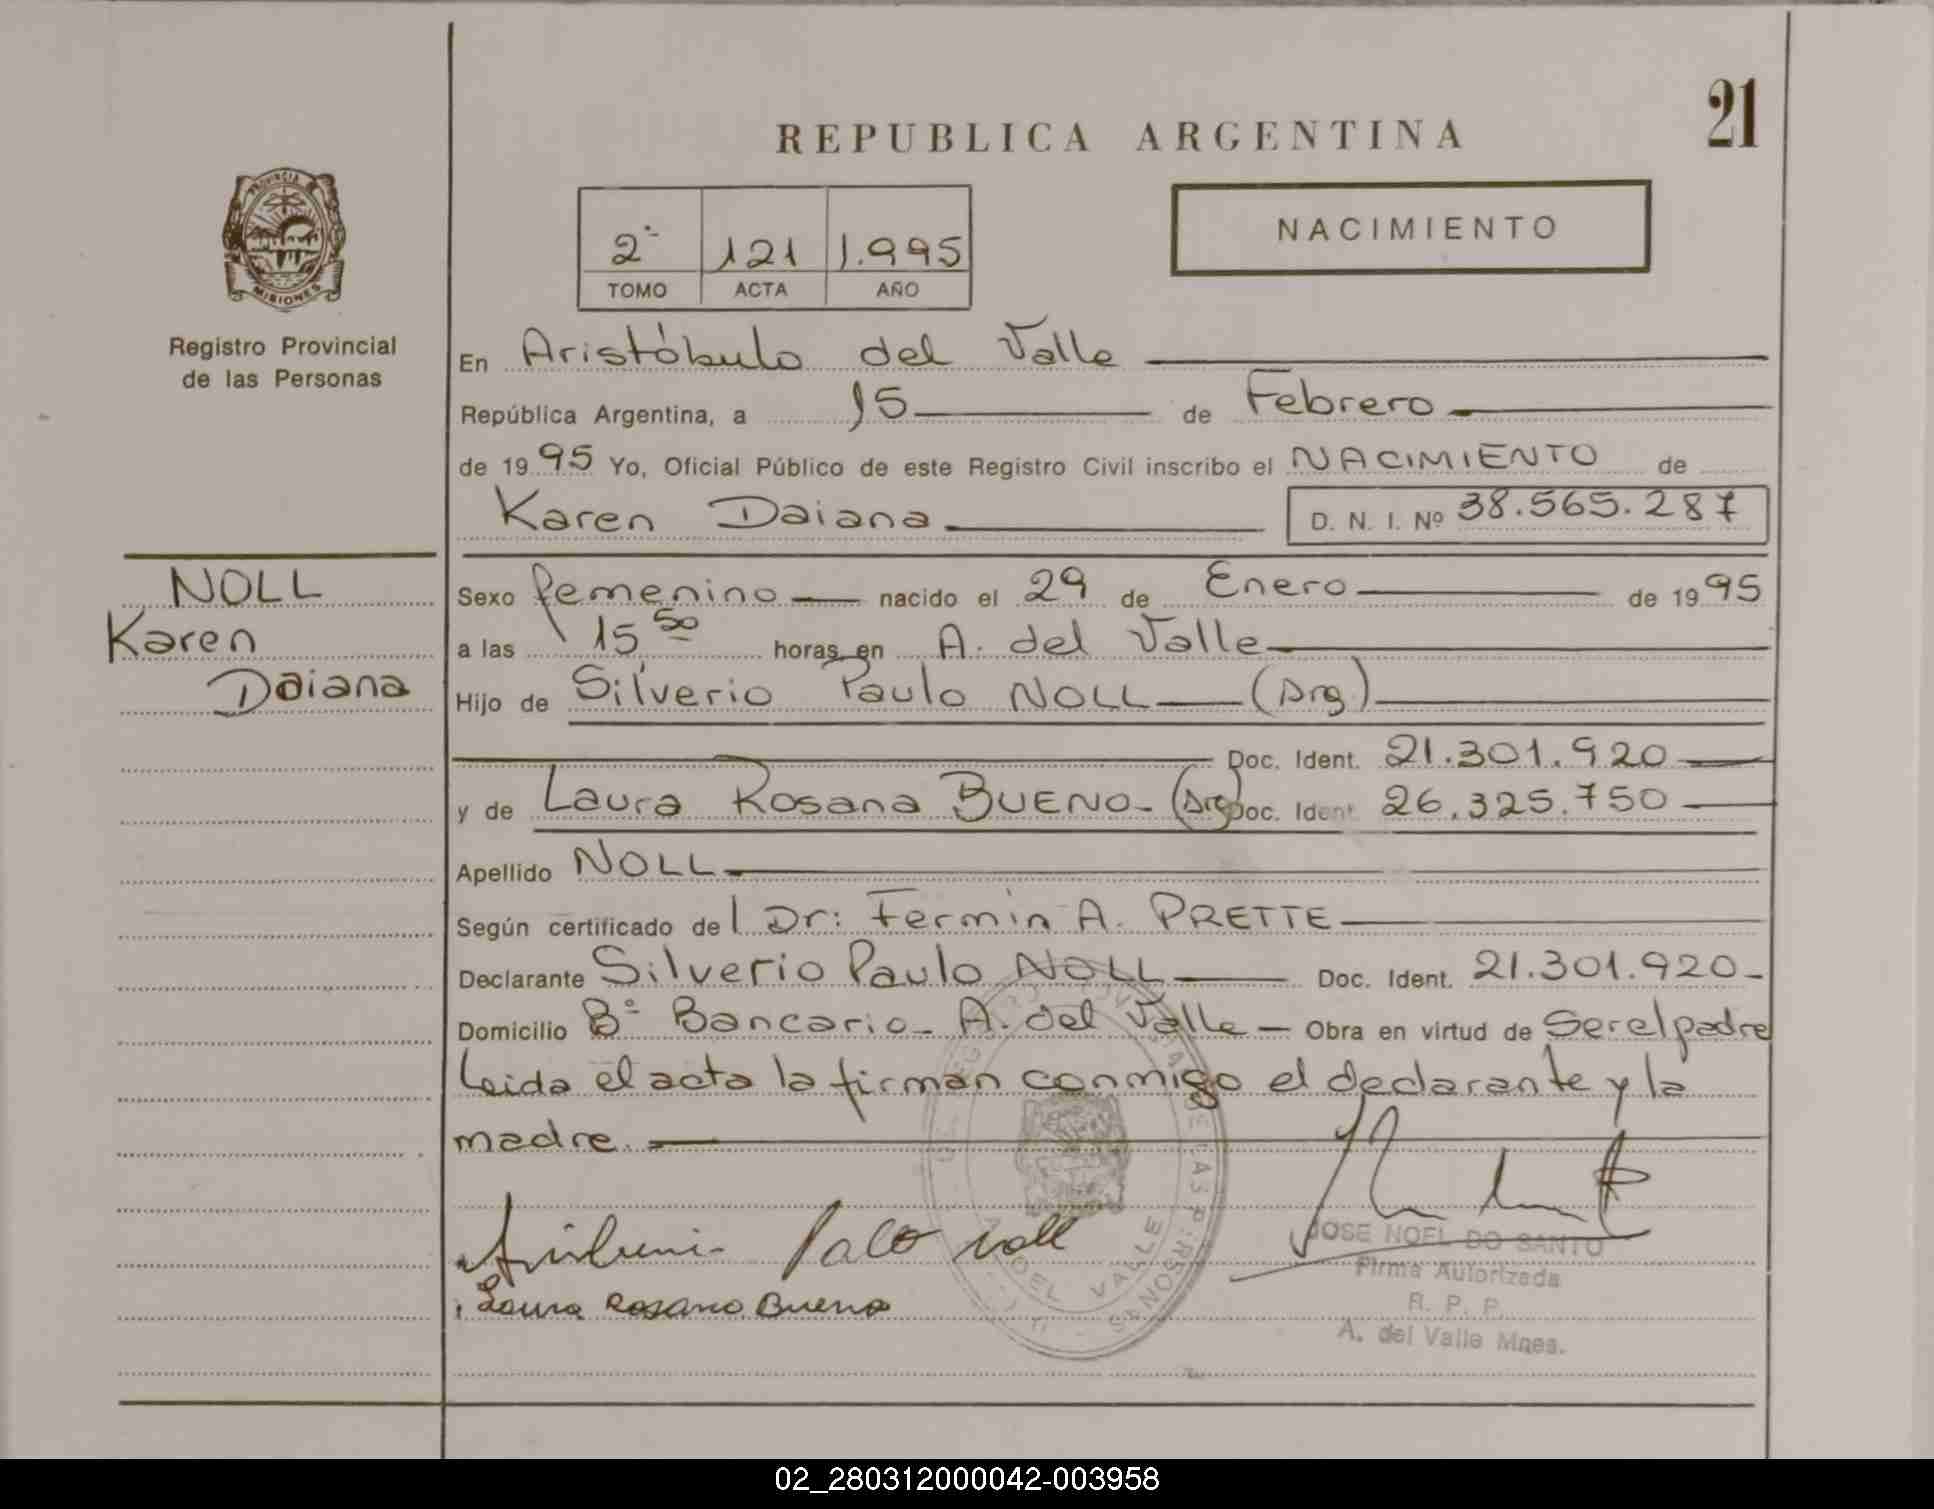 21
REPUBLICA ARGENTINA
PROVINCIA
MISIONES
Registro Provincial
de las Personas
2º 121 1.995
TOMO ACTA AÑO
NACIMIENTO
En Aristóbulo del Valle
República Argentina, a 15 de Febrero
de 1995 Yo, Oficial Público de este Registro Civil inscribo el NACIMIENTO de
Karen Daiana D. N. I. Nº 38.565.287
NOLL
Karen
Daiana
Sexo femenino nacido el 29 de Enero de 1995
a las 15 50 horas en A. del Valle
Hijo de Silverio Paulo NOLL (Arg)
Doc. Ident. 21.301.920
y de Laura Rosana BUENO - (Arg) Doc. Ident. 26.325.750
Apellido NOLL
Según certificado del Dr: Fermin A. PRETTE
Declarante Silverio Paulo NOLL Doc. Ident. 21.301.920-
Domicilio Bº Bancario - A. del Valle - Obra en virtud de Ser el padre
Leida el acta la firman conmigo el declarante y la
madre.
Paulo Noll
Laura Rosana Bueno
A. DEL VALLE
JOSE NOEL DO SANTO
Firma Autorizada
R. P. P.
A. del Valle Mnes.
02_280312000042-003958